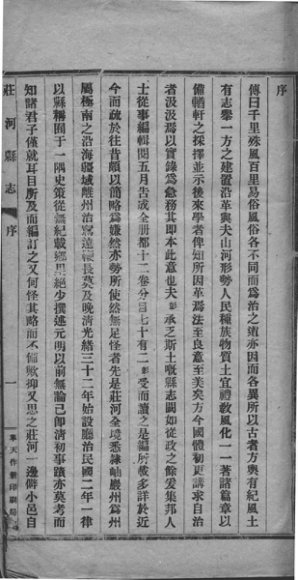 序
傳曰千里殊風百里易俗風俗各不同而爲治之道亦因而各異所以古者方輿有紀風土
有志舉一方之建置沿革與夫山河形勢人民種族物質土宜禮敎風化一一著諸篇章以
備輶軒之採擇並示後來學者俾知所因革焉法至良意至美矣方今國體初更講求自治
者汲汲焉以實錄爲急務其即本此意也夫 承乏斯土嘅縣志闕如從政之餘爰集邦人
士從事編輯閱五月告成全册都十二卷分目七十有二 受而讀之是編所載多詳於近
今而疏於往昔頗以簡略爲嫌然亦勢所使然無足怪者先是莊河全境悉隸岫巖州爲州
屬極南之沿海疆域離州治寫遠 長莫及晚淸光緒三十二年始設廳治民國二年一律
以縣稱囿于一隅史策從無紀載鄉 絕少撰述元明以前無論己即淸初事蹟亦莫考而
知諸君子僅就耳目所及而編訂之又何怪其略而不備歟抑又思之莊河一邊僻小邑自
莊河縣志
序
一
奉天作新印刷局